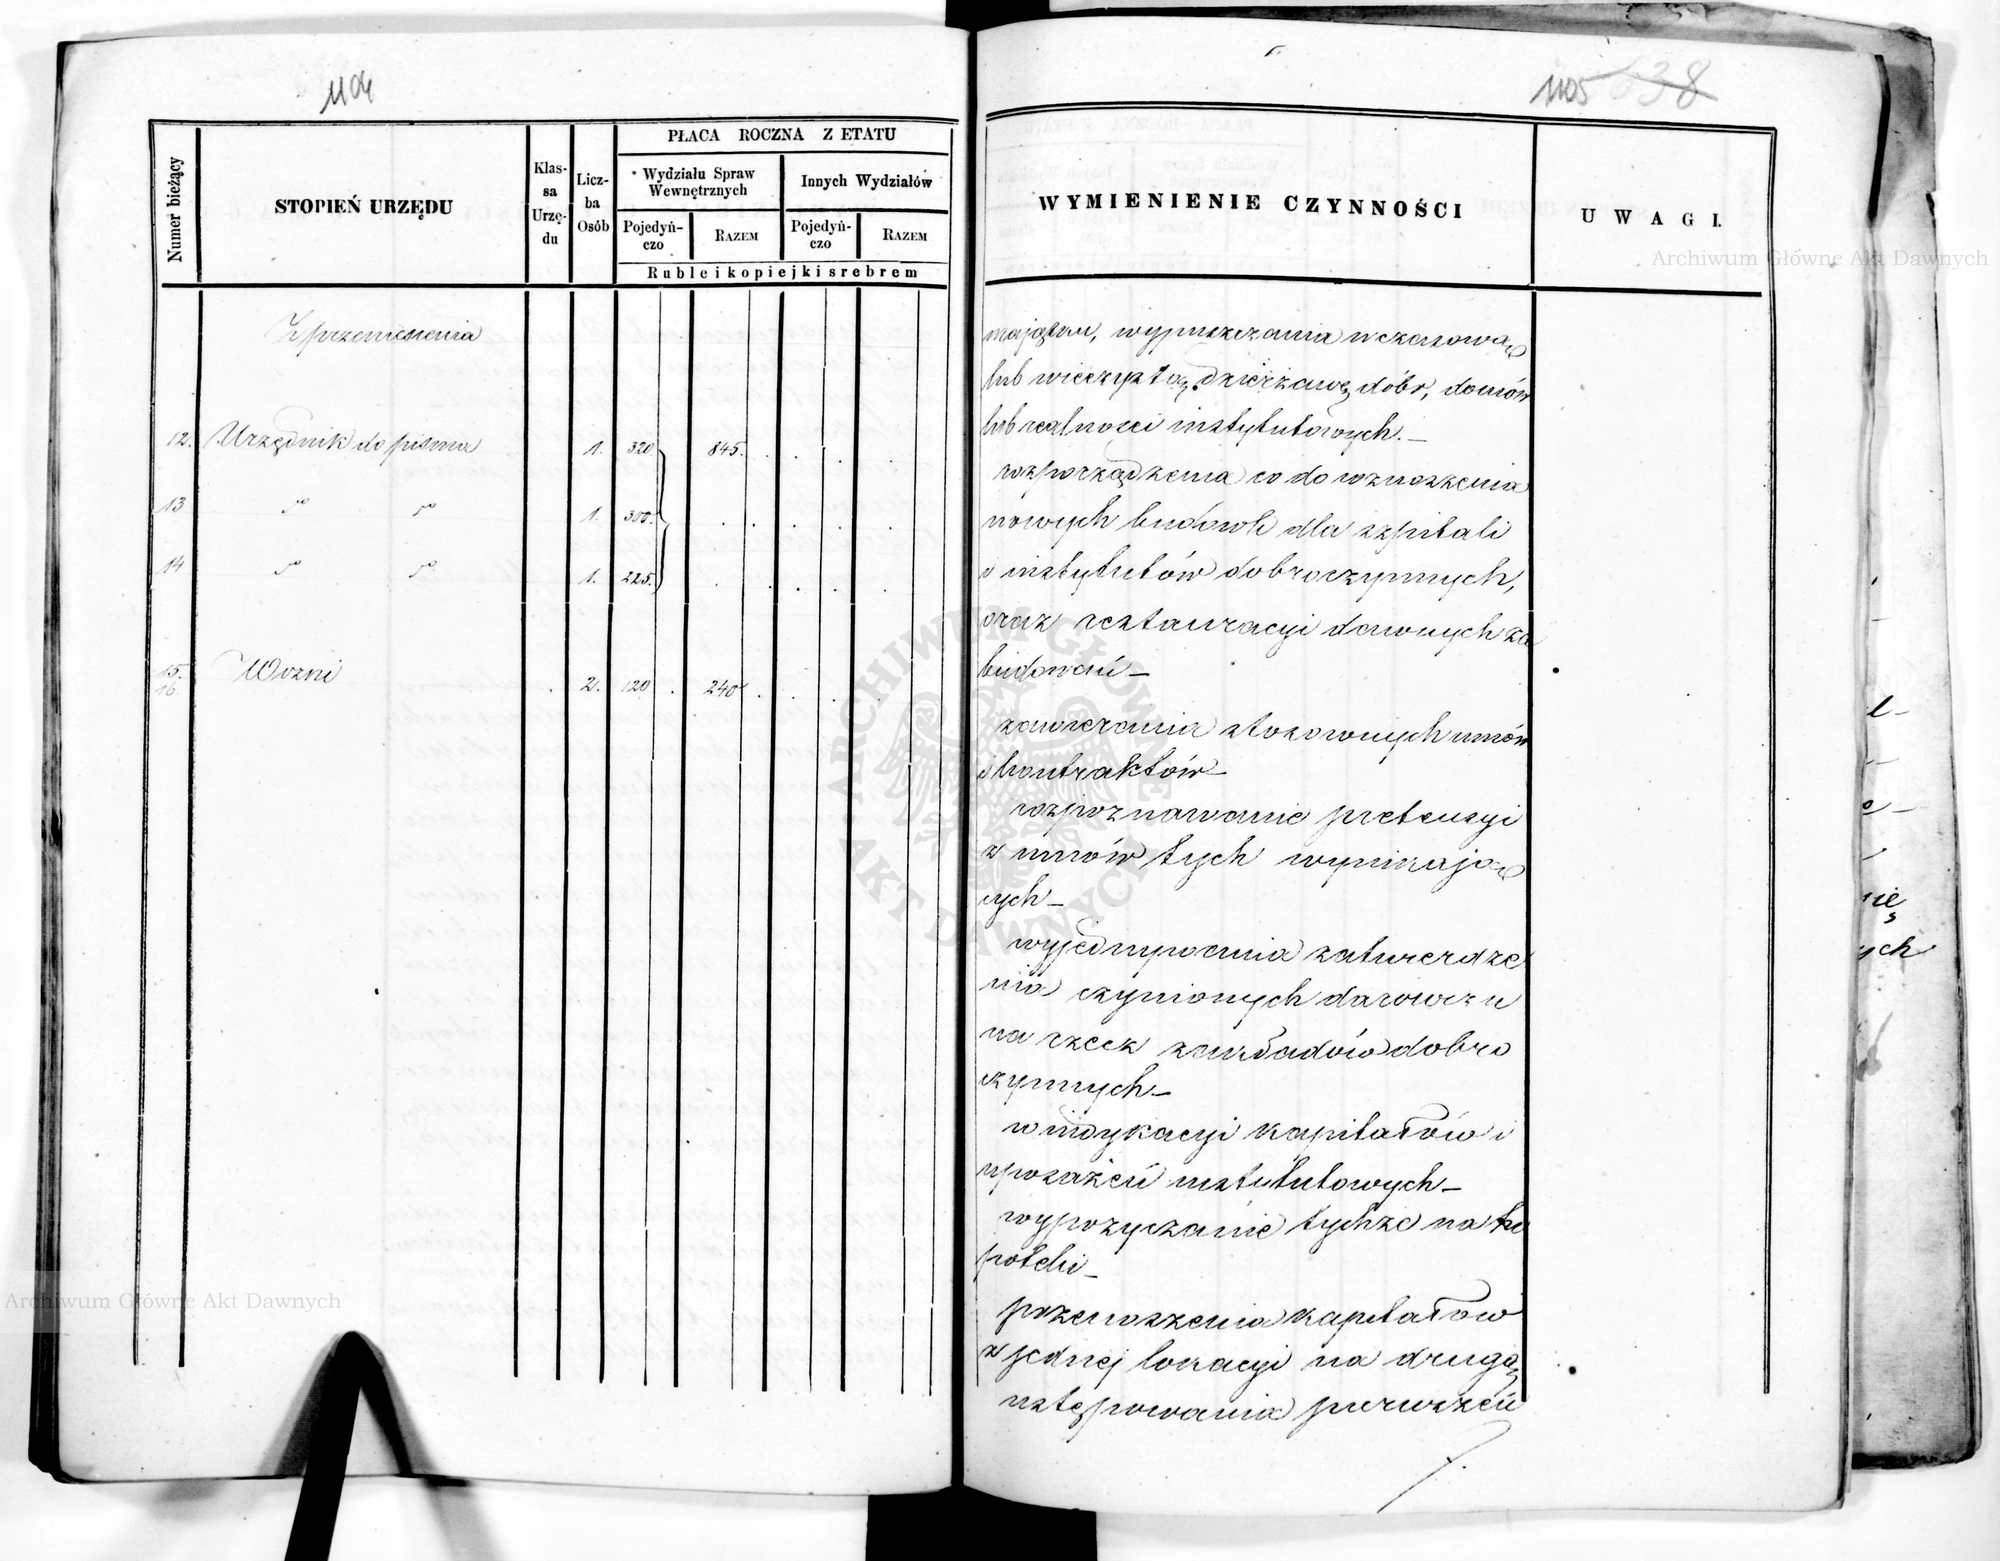 1104
Numer bieżący
STOPIEŃ URZĘDU
Klas-
sa
Urzę-
du
Licz-
ba
Osób
PŁACA ROCZNA Z ETATU
Wydziału Spraw
Wewnętrznych
Innych Wydziałów
Pojedyń-
czo
RAZEM
Pojedyń-
czo
RAZEM
Ruble i kopiejki srebrem
Z przeniesienia
12. Urzędnik do pisma 1. 320 845.
13 " " 1. 300.
14 " " 1. 225.
15.
16. Wozni 2. 120 240
1105 638
WYMIENIENIE CZYNNOŚCI
UWAGI.
majątku, wypuszczania w czasową
lub wieczystą dzierżawę dóbr, domów
lub realności instytutowych.—
rozporządzenia co do wznoszenia
nowych budowli dla szpitali
i instytutów dobroczynnych,
oraz restauracyi dawnych za
budowań—
zawierania stosownych umów
i kontraktów—
rozpoznawanie pretensyi
z umów tych wynikają
cych—
wyjednywania zatwierdze
nia czynionych darowizn
na rzecz zakładów dobro
czynnych—
windykacyi kapitałów i
uposażeń instytutowych—
wypożyczanie tychże na hy
poteki—
przenoszenia kapitałów
z jednej lokacyi na drugą
ustępowania pierwszeń
Archiwum Główne Akt Dawnych
Archiwum Główne Akt Dawnych
ARCHIWUM GŁÓWNE
AKT DAWNYCH